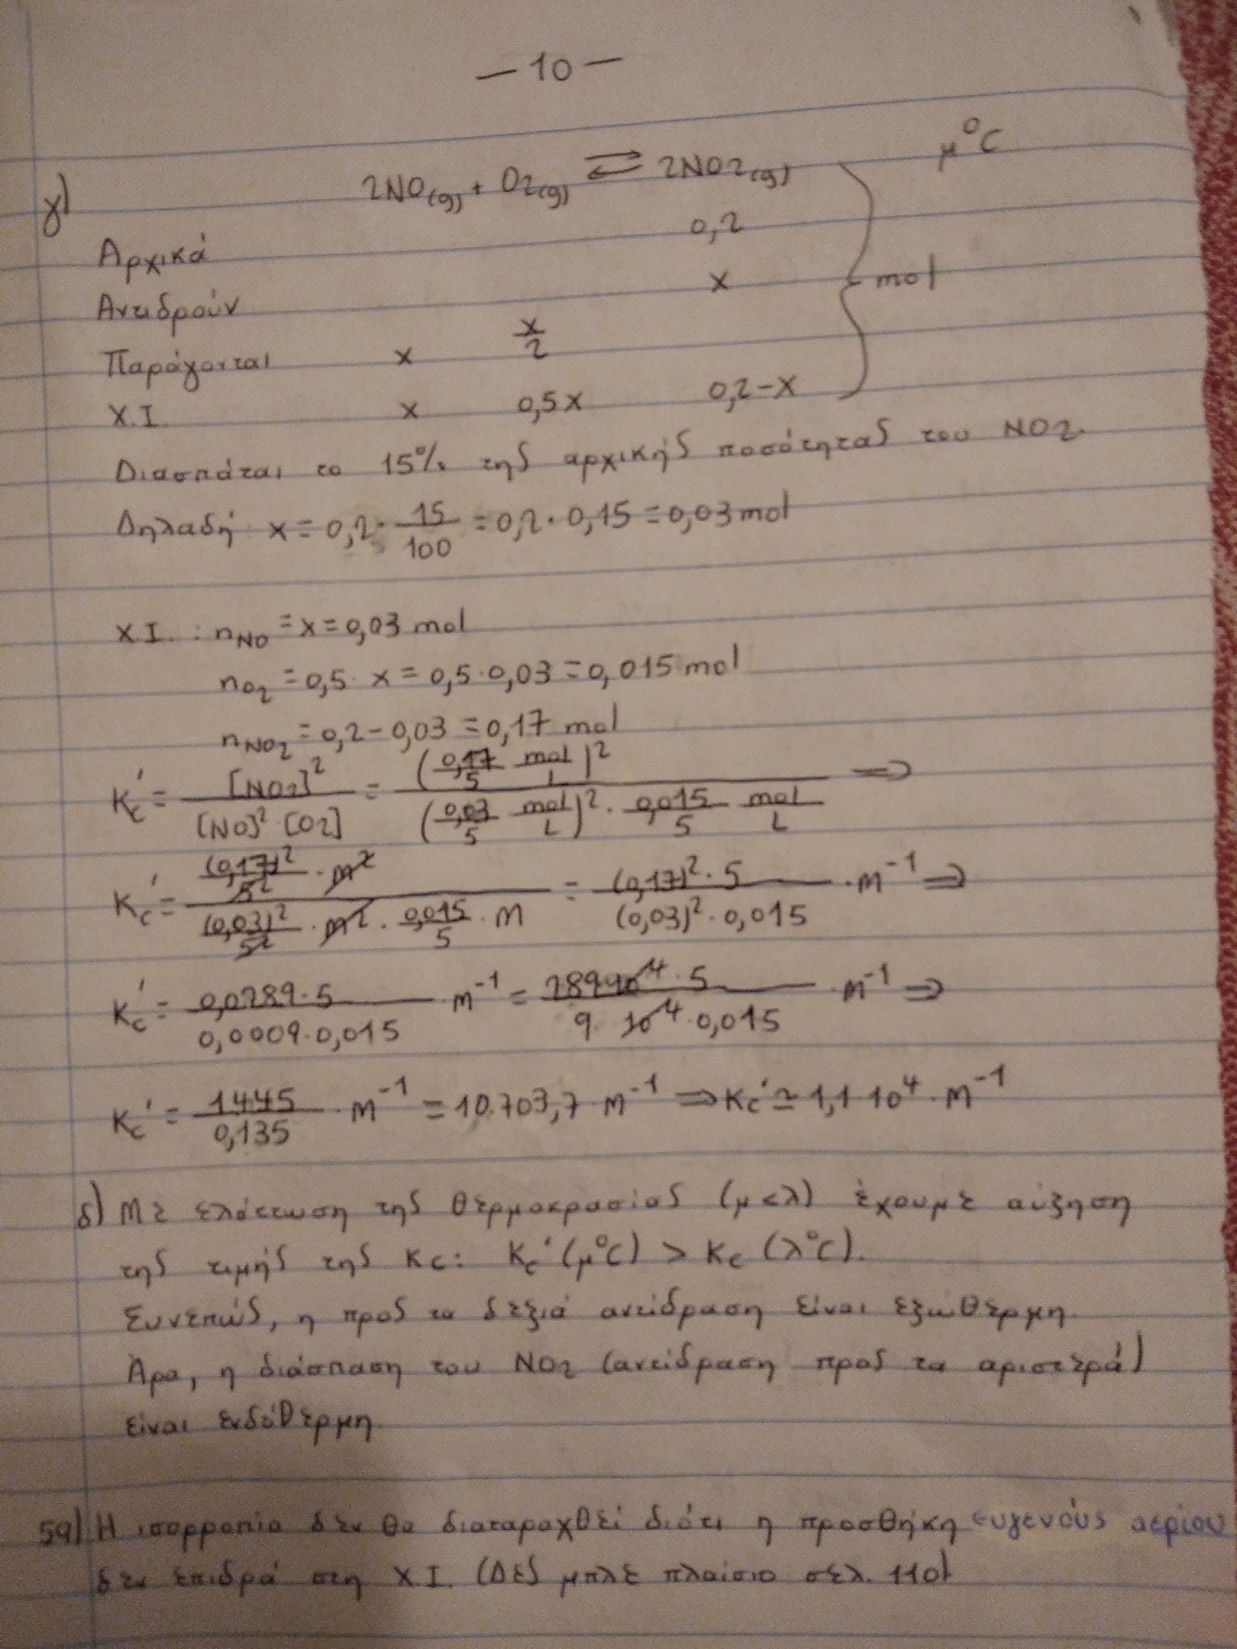 — 10 —
γ) 2NO(g) + O2(g) ⇌ 2NO2(g) μ°C
Αρχικά 0,2
Αντιδρούν x mol
Παράγονται x x/2
Χ.Ι. x 0,5x 0,2-x
Διασπάται το 15% της αρχικής ποσότητας του NO2.
Δηλαδή x = 0,2 · 15/100 = 0,2 · 0,15 = 0,03 mol
Χ.Ι. : nNO = x = 0,03 mol
nO2 = 0,5 · x = 0,5 · 0,03 = 0,015 mol
nNO2 = 0,2 - 0,03 = 0,17 mol
Kc' = [NO2]² / [NO]² [O2] = (0,17/5 mol/L)² / (0,03/5 mol/L)² · 0,015/5 mol/L ⇒
Kc' = (0,17)²/5² · M² / (0,03)²/5² · M² · 0,015/5 · M = (0,17)² · 5 / (0,03)² · 0,015 · M⁻¹ ⇒
Kc' = 0,0289 · 5 / 0,0009 · 0,015 M⁻¹ = 289 · 10⁻⁴ · 5 / 9 · 10⁻⁴ · 0,015 · M⁻¹ ⇒
Kc' = 1445 / 0,135 · M⁻¹ = 10.703,7 · M⁻¹ ⇒ Kc' ≃ 1,1 · 10⁴ · M⁻¹
δ) Με ελάττωση της θερμοκρασίας (μ<λ) έχουμε αύξηση
της τιμής της Kc: Kc' (μ°C) > Kc (λ°C).
Συνεπώς, η προς τα δεξιά αντίδραση είναι εξώθερμη.
Άρα, η διάσπαση του NO2 (αντίδραση προς τα αριστερά)
είναι ενδόθερμη.
59) Η ισορροπία δεν θα διαταραχθεί διότι η προσθήκη ευγενούς αερίου
δεν επιδρά στη Χ.Ι. (Δες μπλε πλαίσιο σελ. 110)